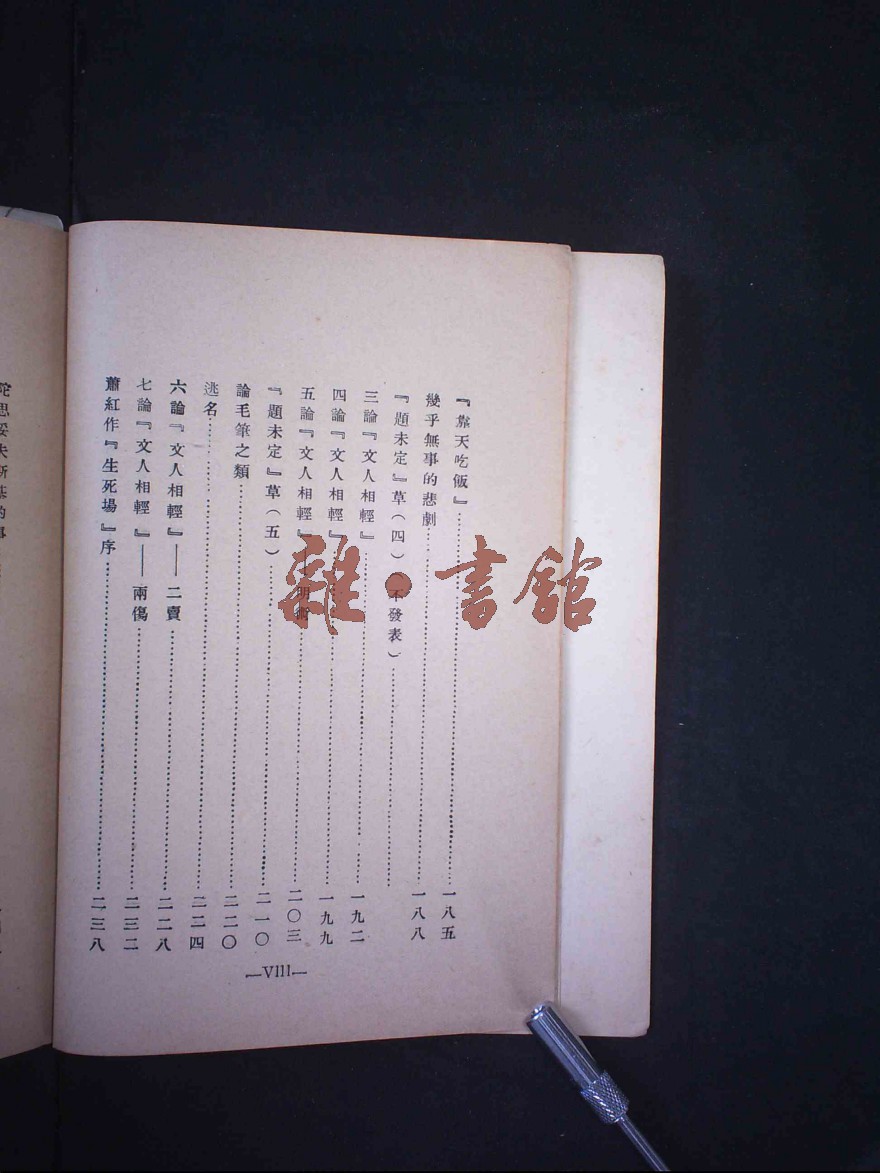 『靠天吃飯』……一八五
幾乎無事的悲劇……一八八
『題未定』草(四)(不發表)……
三論『文人相輕』……一九二
四論『文人相輕』……一九九
五論『文人相輕』——明術……二〇三
『題未定』草(五)……二一〇
論毛筆之類……二二〇
逃名……二二四
六論『文人相輕』——二賣……二二八
七論『文人相輕』——兩傷……二三二
蕭紅作『生死場』序……二三八
—VIII—
陀思妥夫斯基的事
雜·書館